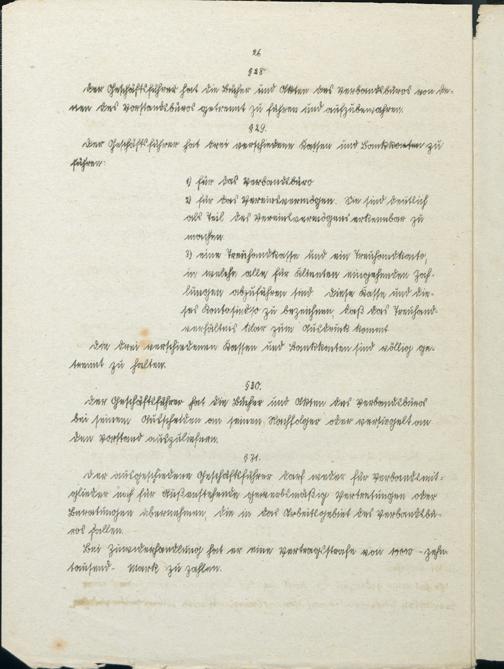 26
§28
Der Geschäftsführer hat die Bücher und Akten des Verbandsbüros von de-
nen des Vorstandsbüros getrennt zu führen und aufzubewahren.
§29.
Der Geschäftsführer hat drei verschiedene Kassen und Bankkonten zu
führen:
1) für das Verbandsbüro
2) für das Vereinsvermögen. Sie sind deutlich
als Teil des Vereinsvermögens erkennbar zu
machen
3) eine Treuhandkasse und ein Treuhandkonto,
in welche alle für Klienten eingehenden Zah-
lungen abzuführen sind. Diese Kasse und die-
ses Konto sind so zu bezeichnen, daß das Treuhand-
verhältnis klar zum Ausdruck kommt
Die drei verschiedenen Kassen und Bankkonten sind völlig ge-
trennt zu halten.
§30.
Der Geschäftsführer hat die Bücher und Akten des Verbandsbüros
bei seinem Ausscheiden an seinen Nachfolger oder versiegelt an
den Vorstand auszuliefern.
§31.
Der ausgeschiedene Geschäftsführer darf weder für Verbandsmit-
glieder noch für Außenstehende gewerbsmäßig Vertretungen oder
Beratungen übernehmen, die in das Arbeitsgebiet des Verbandsbü-
ros fallen.
Bei Zuwiderhandlung hat er eine Vertragsstrafe von 10000 - zehn-
tausend - Mark zu zahlen.